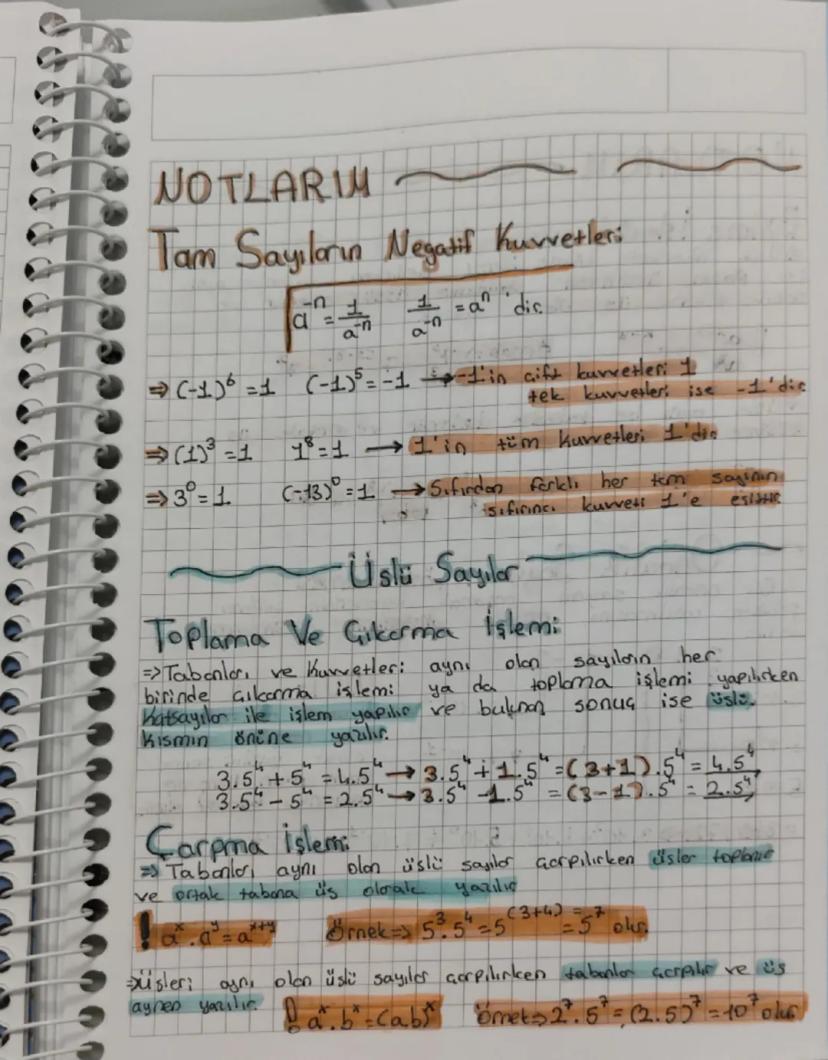 NOTLARIM
Tam Sayıların Negatif Kuvvetleri
a⁻ⁿ = 1/a⁻ⁿ 1/a⁻ⁿ = aⁿ 'dir.
⇒ (-1)⁶ = 1 (-1)⁵ = -1 → -1'in çift kuvvetleri 1
tek kuvvetleri ise -1'dir
⇒ (1)³ = 1 1⁸ = 1 → 1'in tüm kuvvetleri 1'dir
⇒ 3⁰ = 1 (-13)⁰ = 1 → Sıfırdan farklı her tam sayının
sıfırıncı kuvveti 1'e eşittir
Üslü Sayılar
Toplama Ve Çıkarma İşlemi
⇒ Tabanları ve Kuvvetleri aynı olan sayıların her
birinde çıkarma işlemi ya da toplama işlemi yapılırken
katsayılar ile işlem yapılır ve bulunan sonuç ise üslü
kısmın önüne yazılır.
3.5⁴ + 5⁴ = 4.5⁴ → 3.5⁴ + 1.5⁴ = (3+1).5⁴ = 4.5⁴
3.5⁴ - 5⁴ = 2.5⁴ → 3.5⁴ - 1.5⁴ = (3-1).5⁴ = 2.5⁴
Çarpma İşlemi
⇒ Tabanları aynı olan üslü sayılar çarpılırken üsler toplanır
ve ortak tabana üs olarak yazılır
! aˣ.aʸ = aˣ⁺ʸ Örnek ⇒ 5³.5⁴ = 5⁽³⁺⁴⁾ = = 5⁷ olur.
⇒ Üsleri aynı olan üslü sayılar çarpılırken tabanlar çarpılır ve üs
aynen yazılır. ! aˣ.bˣ = (a.b)ˣ Örnek ⇒ 2⁷.5⁷ = (2.5)⁷ = 10⁷ olur